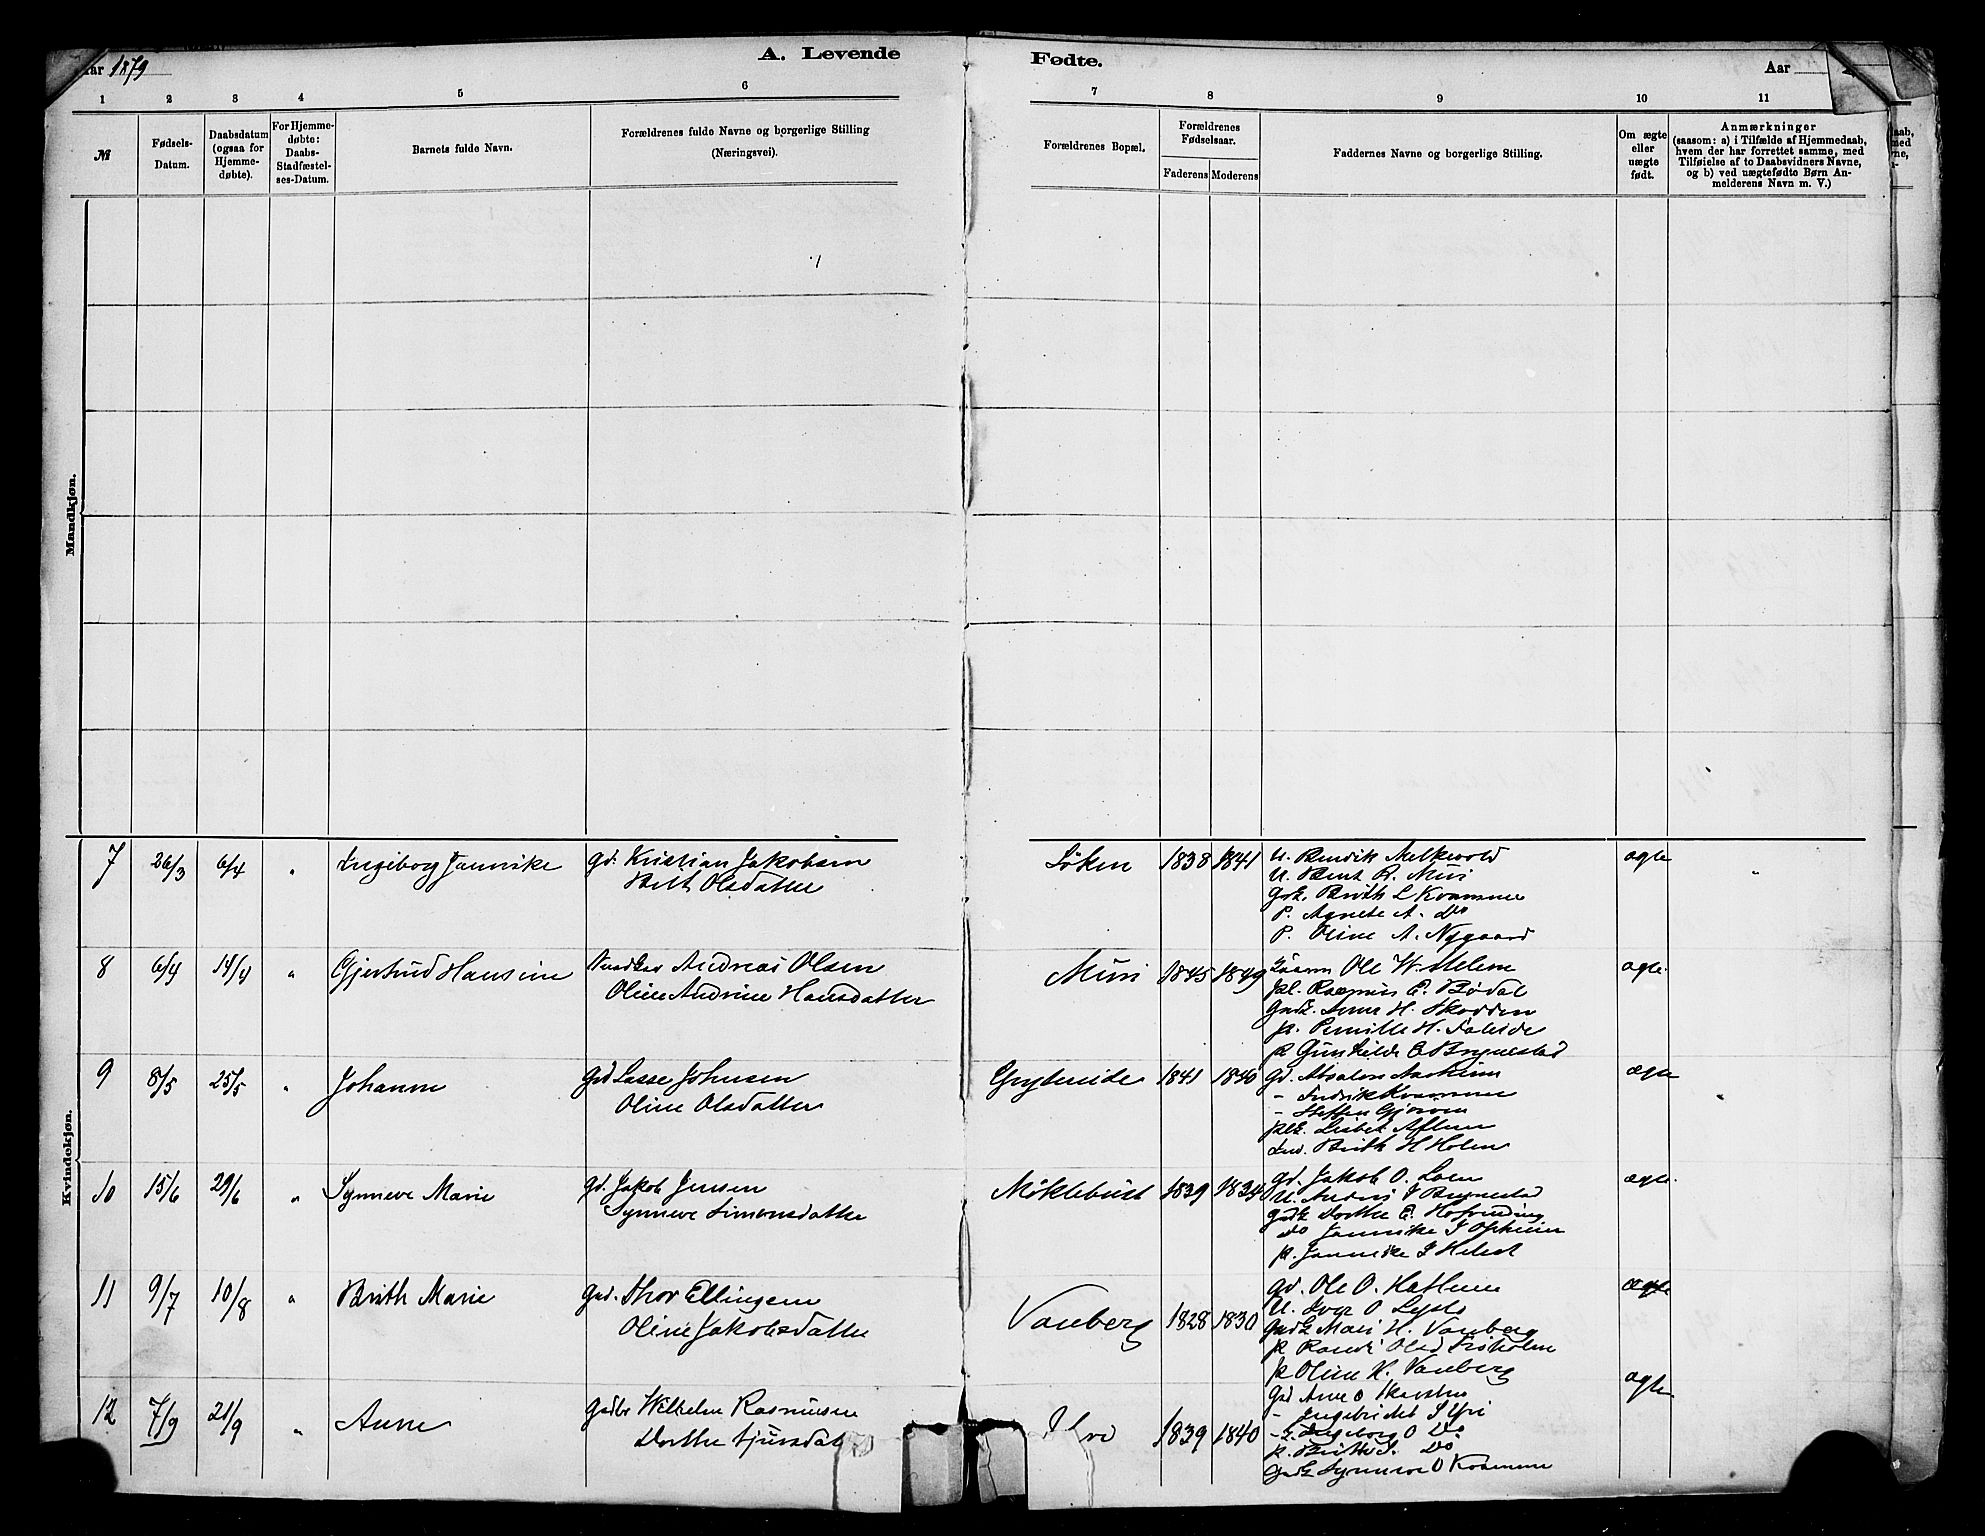 Aar 1879
A. Levende
Fødte.
Aar
1 2 3 4 5 6 7 8 9 10 11
№
Fødsels-
Datum.
Daabsdatum
(ogsaa for
Hjemme-
døbte).
For Hjemme-
døbte:
Daabs-
Stadfæstel-
ses-Datum.
Barnets fulde Navn.
Forældrenes fulde Navne og borgerlige Stilling
(Næringsvei).
Forældrenes Bopæl.
Forældrenes
Fødselsaar.
Faderens Moderens
Faddernes Navne og borgerlige Stilling.
Om ægte
eller
uægte
født.
Anmærkninger
(saasom: a) i Tilfælde af Hjemmedaab,
hvem der har forrettet samme, med
Tilføielse af to Daabsvidners Navne,
og b) ved uægtefødte Børn An-
melderens Navn m. V.)
Mandkjøn.
Kvindekjøn.
7 26/3 6/4 " Ingeborg Jannike
gd. Kristian Jakobsen
Brit Olsdatter
Løken 1838 1841
U. Bendik Melkevold
U. Bent R. Muri
Gdk. Brith L Kvamme
P. Agnete A. Do
P. Oline A. Nygaard
ægte
8 6/4 14/4 " Gjertrud Hansine
Andreas Olsen
Oline Andrine Hansdatter
Muri 1845 1849
Ole W. Melem
pl. Rasmus E. Bødal
Gdk. Anne H. Skodden
p. Pernille H. Faleide
p Gunhilde E Brynestad
ægte.
9 8/5 25/5 " Johanne
Gd Lasse Johnsen
Oline Olsdatter
Gryteneide 1841 1840
Gd. Absalon Aarheim
- Fredrik Kvamme
- Steffen Gjørven
plk. Lisbet Aflem
Brith H Holen
ægte
10 15/6 29/6 " Synneve Marie
gd. Jakob Jensen
Synneve Simonsdatter
Møklebust 1839 1834
gd. Jakob O. Loen
U. Anders J Brynestad
gdk Dorthe E.
Do Jannike J Opheim
p. Jannike J
ægte.
11 9/7 10/8 " Brith Marie
Gd. Thor Ellingsen
Oline Jakobsdatter
Vanberg 1828 1830
Gd. Ole O.
U. Iver O
Gdk Mari H. Vanberg
p Randi Olsd
p Oline K. Vanberg
ægte
12 7/9 21/9 " Anne
Wilhelm Rasmusen
Dorthe
1839 1840
Gd Arne O
- Ingebrigt S Yri
-k. Ingeborg O Do
p. Brithe S. Do
Gdk Synneve O Kvamme
ægte